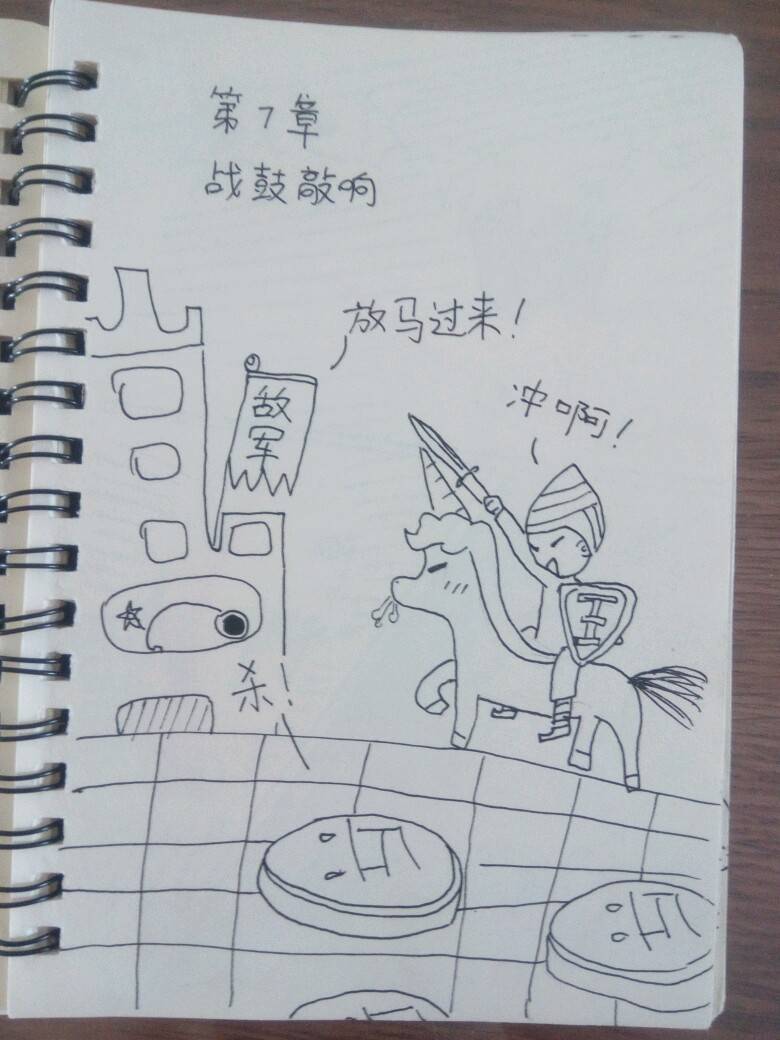 第7章
战鼓敲响
放马过来！
敌军
冲啊！
杀！
兵
兵